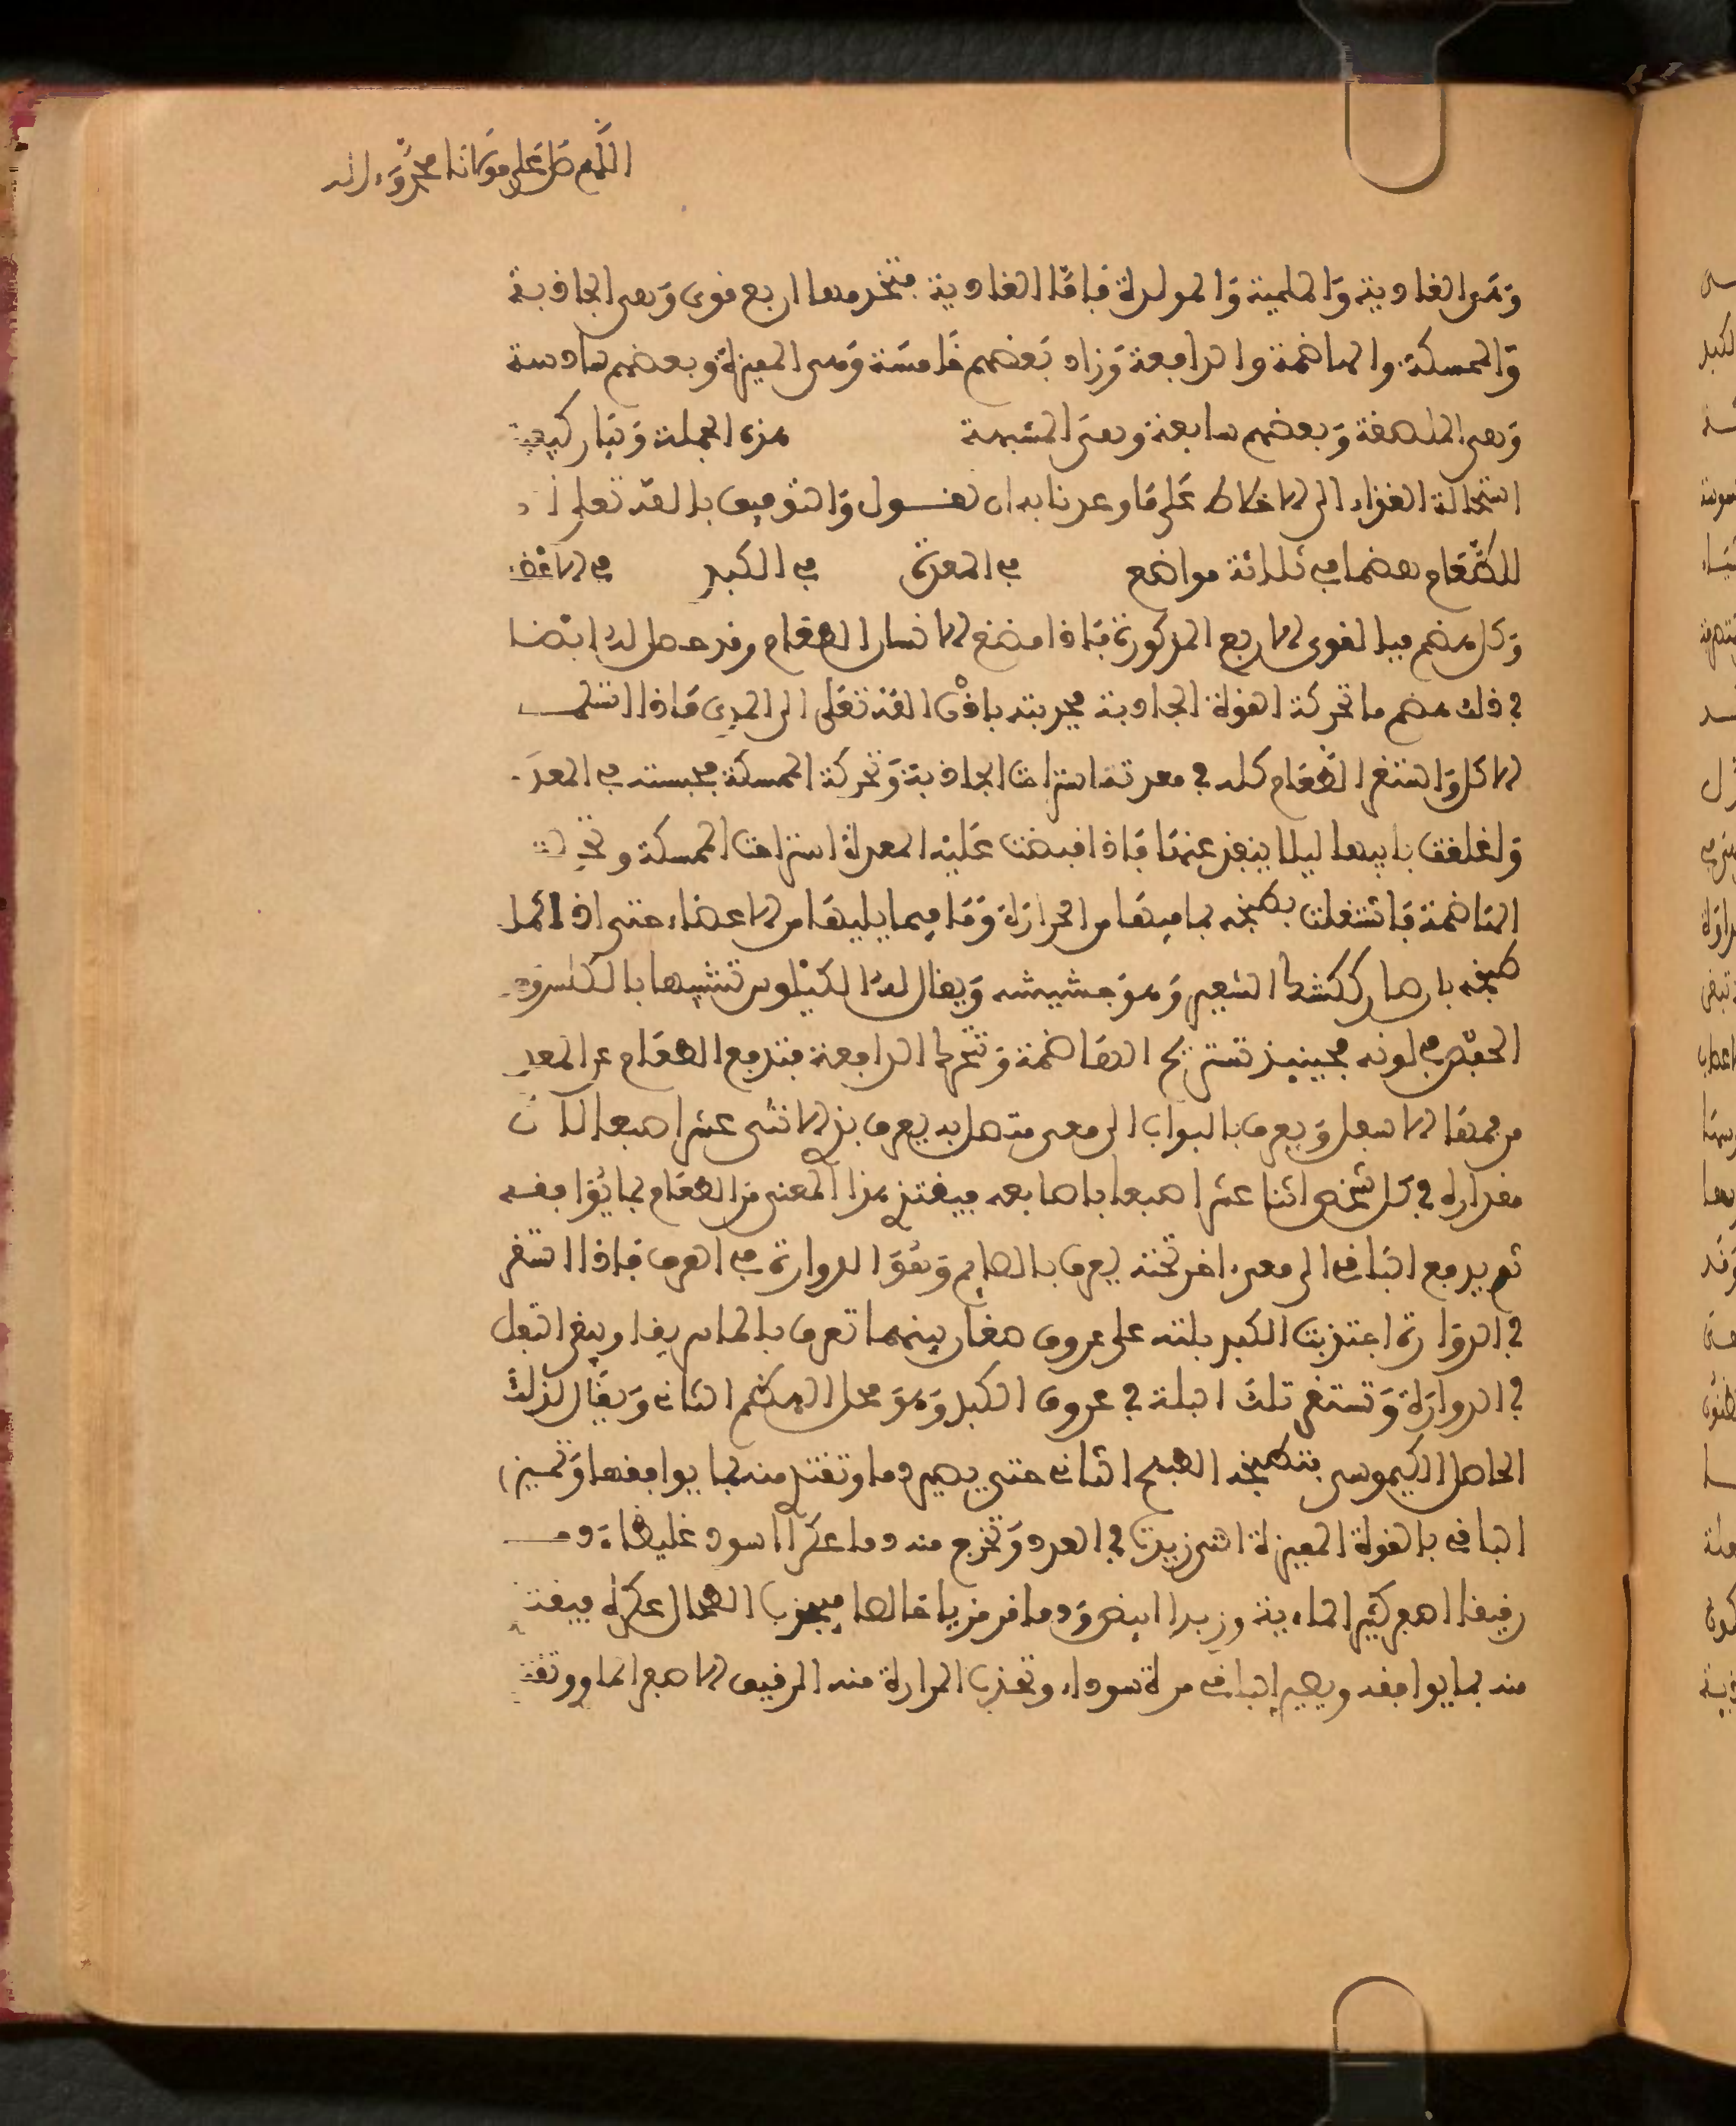 اللهم صل على مولانا محمد وءاله
وهي الغاذية والنامية والمولدة فاما الغاذية فتخدمها اربع قوى وهي الجاذبة
والممسكة والهاضمة والدافعة وزاد بعضهم خامسة وهي المميزة وبعضهم سادسة
وهي الملصقة وبعضهم سابعة وهي المشبهة هذه الجملة وتبار كيفية
استحالة الغذاء الى الاخلاط على ما وعدنا به ان نقول والتوفيق بالله تعلى ان
للطعام هضما في ثلاثة مواضع في المعدة في الكبد في الاعضاء
وكل هضم فيه القوى الاربع المذكورة فاذا مضغ الانسان الطعام وقد حصل له ايضا
في ذلك هضم ما تحركة القوة الجاذبة فجذبته باذن الله تعلى الى المرى فاذا استلم
الاكل واستقر الطعام كله في معدته استراحت الجاذبة وتحركة الممسكة فحبسته في المعدة
واغلقت بابها ليلا ينفذ عنها فاذا قبضت عليه المعدة استراحت الممسكة وتحركت
الهاضمة فاشتغلت بطبخه بما فيها من الحرارة وما فيما يليها من الاعضاء حتى اذا كمل
طبخه بان صار ككشك الشعير وهو جشيشه ويقال له الكيلوس تشبيها بالكلس وهو
الجص في لونه فحينيذ تستريح الهاضمة وتتحرك الدافعة فتدفع الطعام عن المعدة
من فمها الاسفل ويعرف بالبواب الى معى متصل به يعرف بذي الاثنى عشر اصبعا لان
مقداره في كل شخص اثنا عشر اصبعا باصابعه فيغتذي هذا المعنى من الطعام بما يوافقه
ثم يدفع الباقي الى معى ءاخر تحته يعرف بالصايم وهو الدوارة في العرف فاذا استقر
في الدوارة اجتذبت الكبد بلته على عروق صغار بينهما تعرف بالماساريقا ويبقى الثفل
في الدوارة وتستقر تلك البلة في عروق الكبد وهو محل الهضم الثاني ويقال لذلك
الحاصل الكيموس فتطبخه الطبخ الثاني حتى يصير دما وتغتذي منه بما يوافقها وتميز
الباقي بالقوة المميزة التي رتبت في العرد وتخرج منه دما عكرا اسود غليظا ودما
رقيقا اصفر كثير المايية وزبدا ابيض ودما قرمزيا خالصا فيجذب الطحال عكره فيغتذي
منه بما يوافقه ويصير الباقي مرة سوداء وتجذب المرارة منه الرقيق الاصفر الماوي وتغتذي